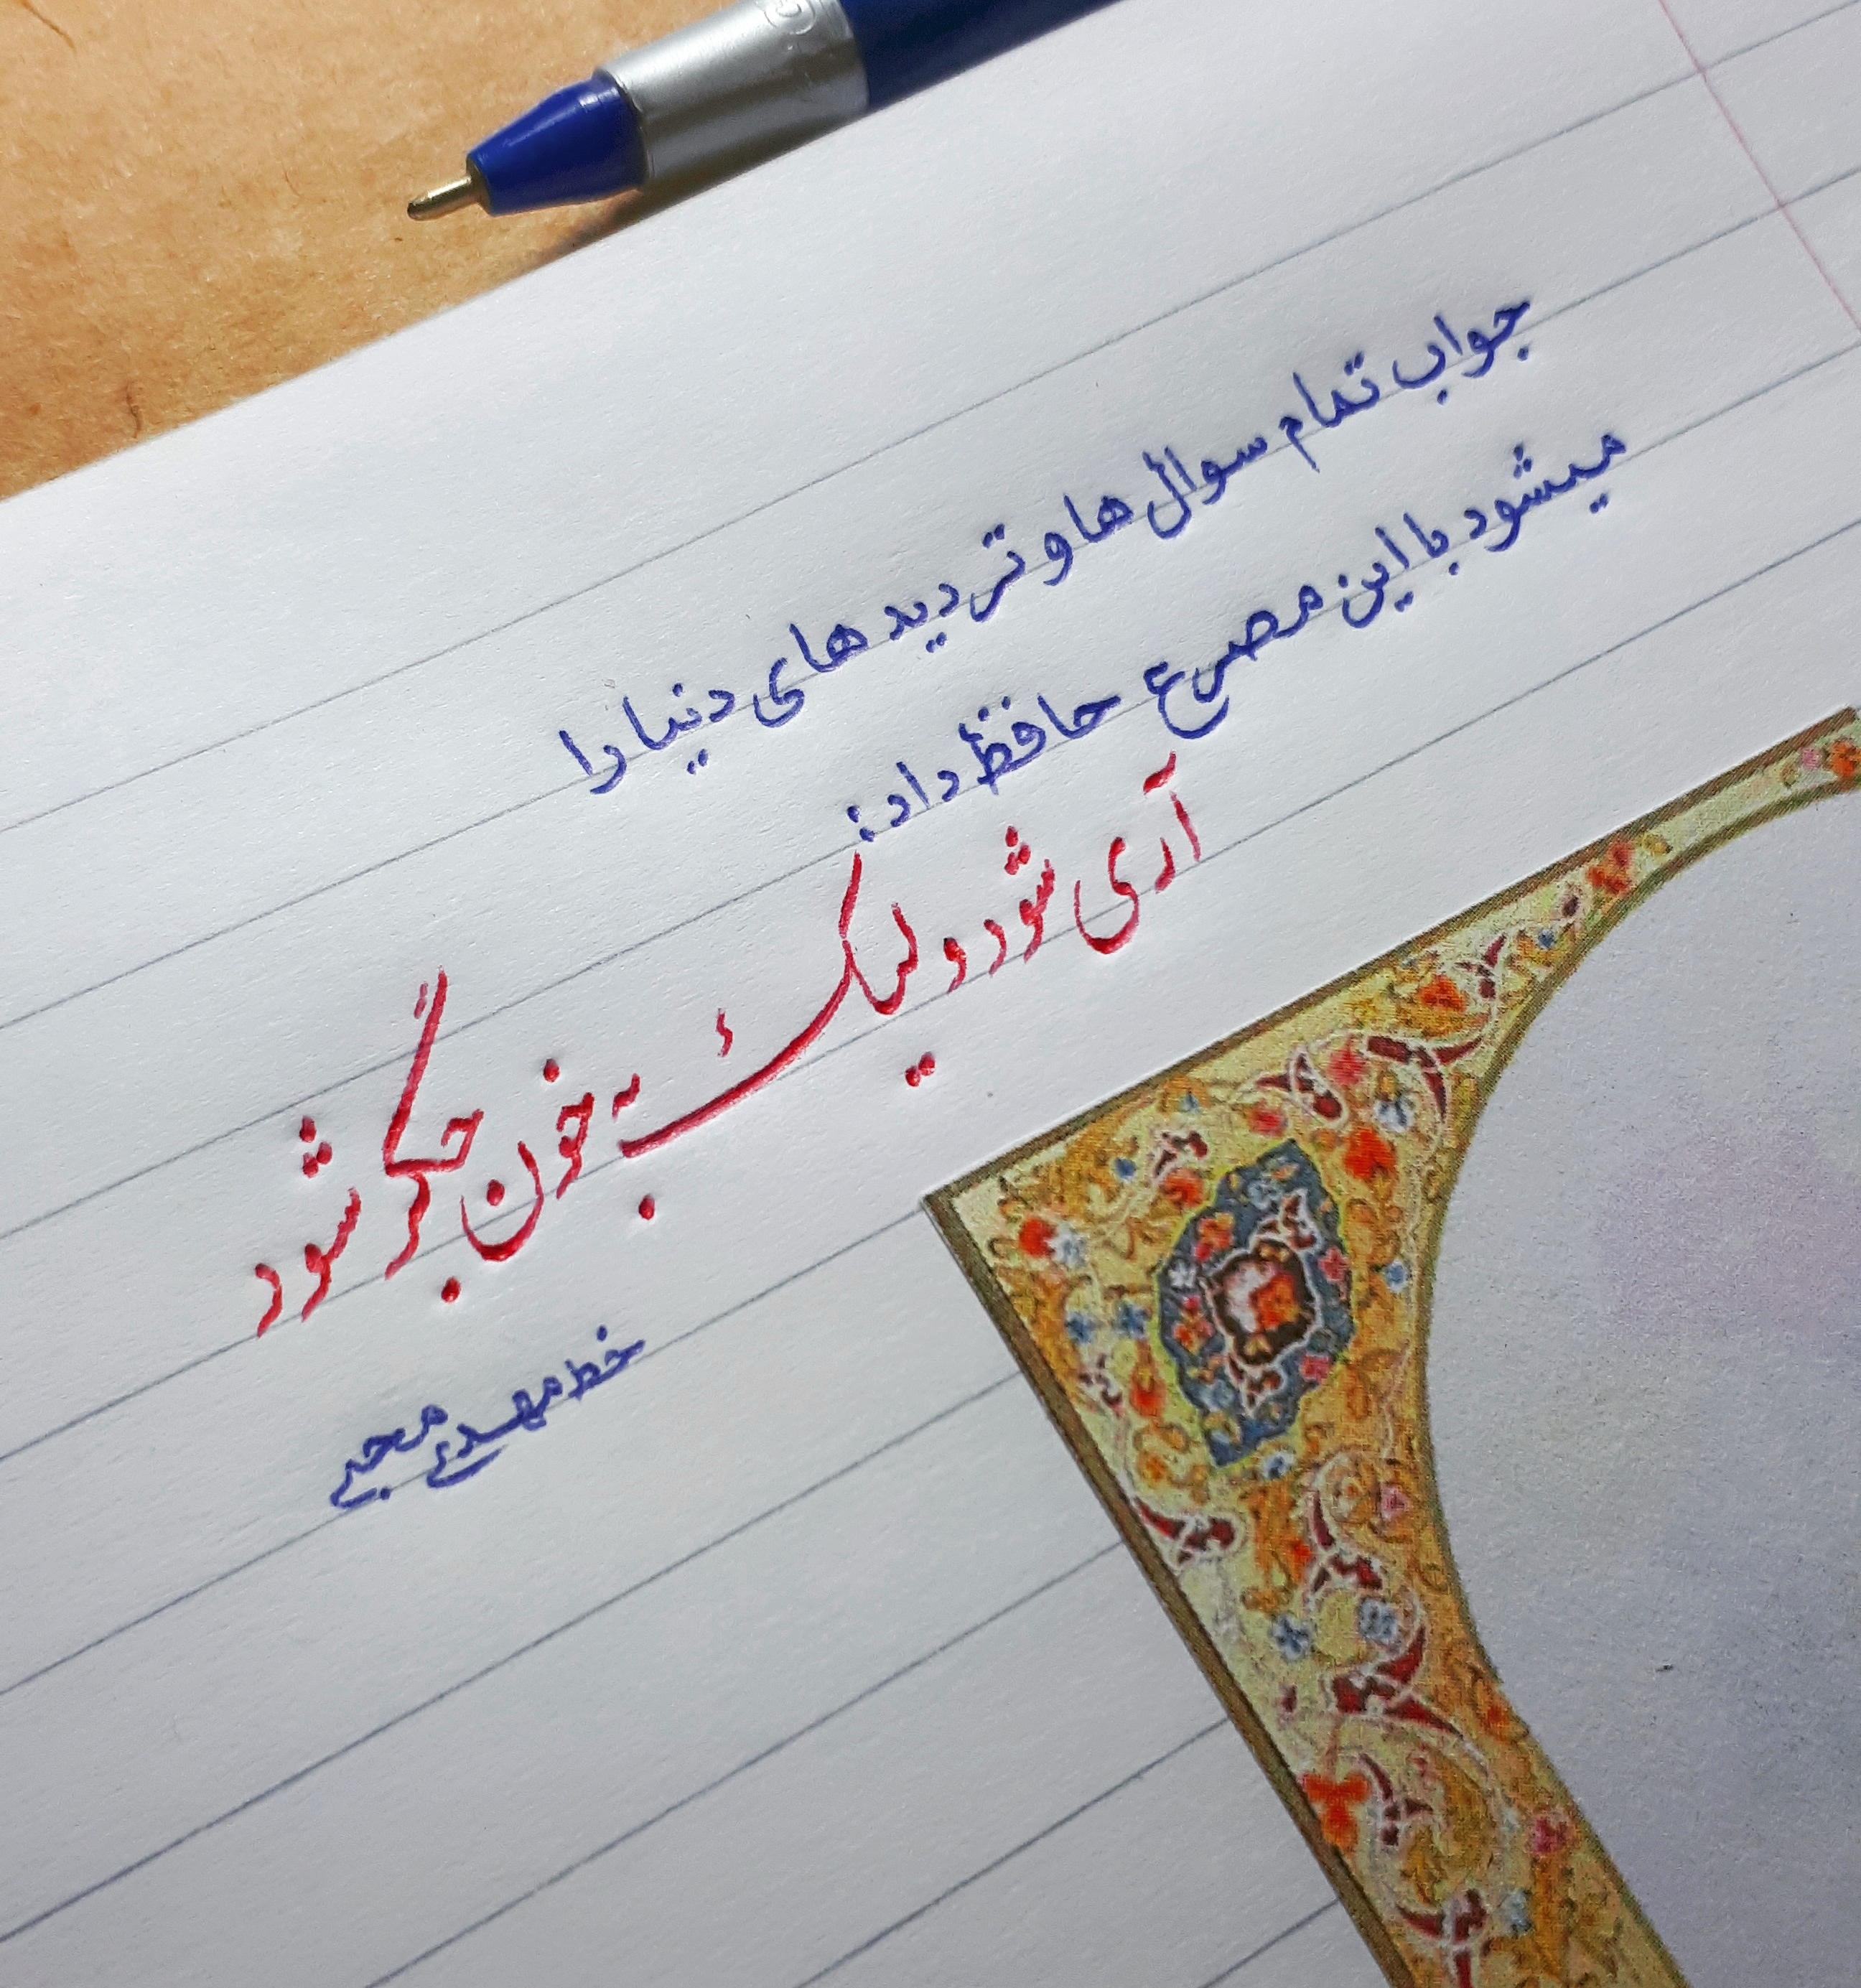 جواب تمام سوال ها و تردید های دنیا را
میشود با این مصرع حافظ داد:
آری شود ولیک به خون جگر شود
خط مهدی محبی